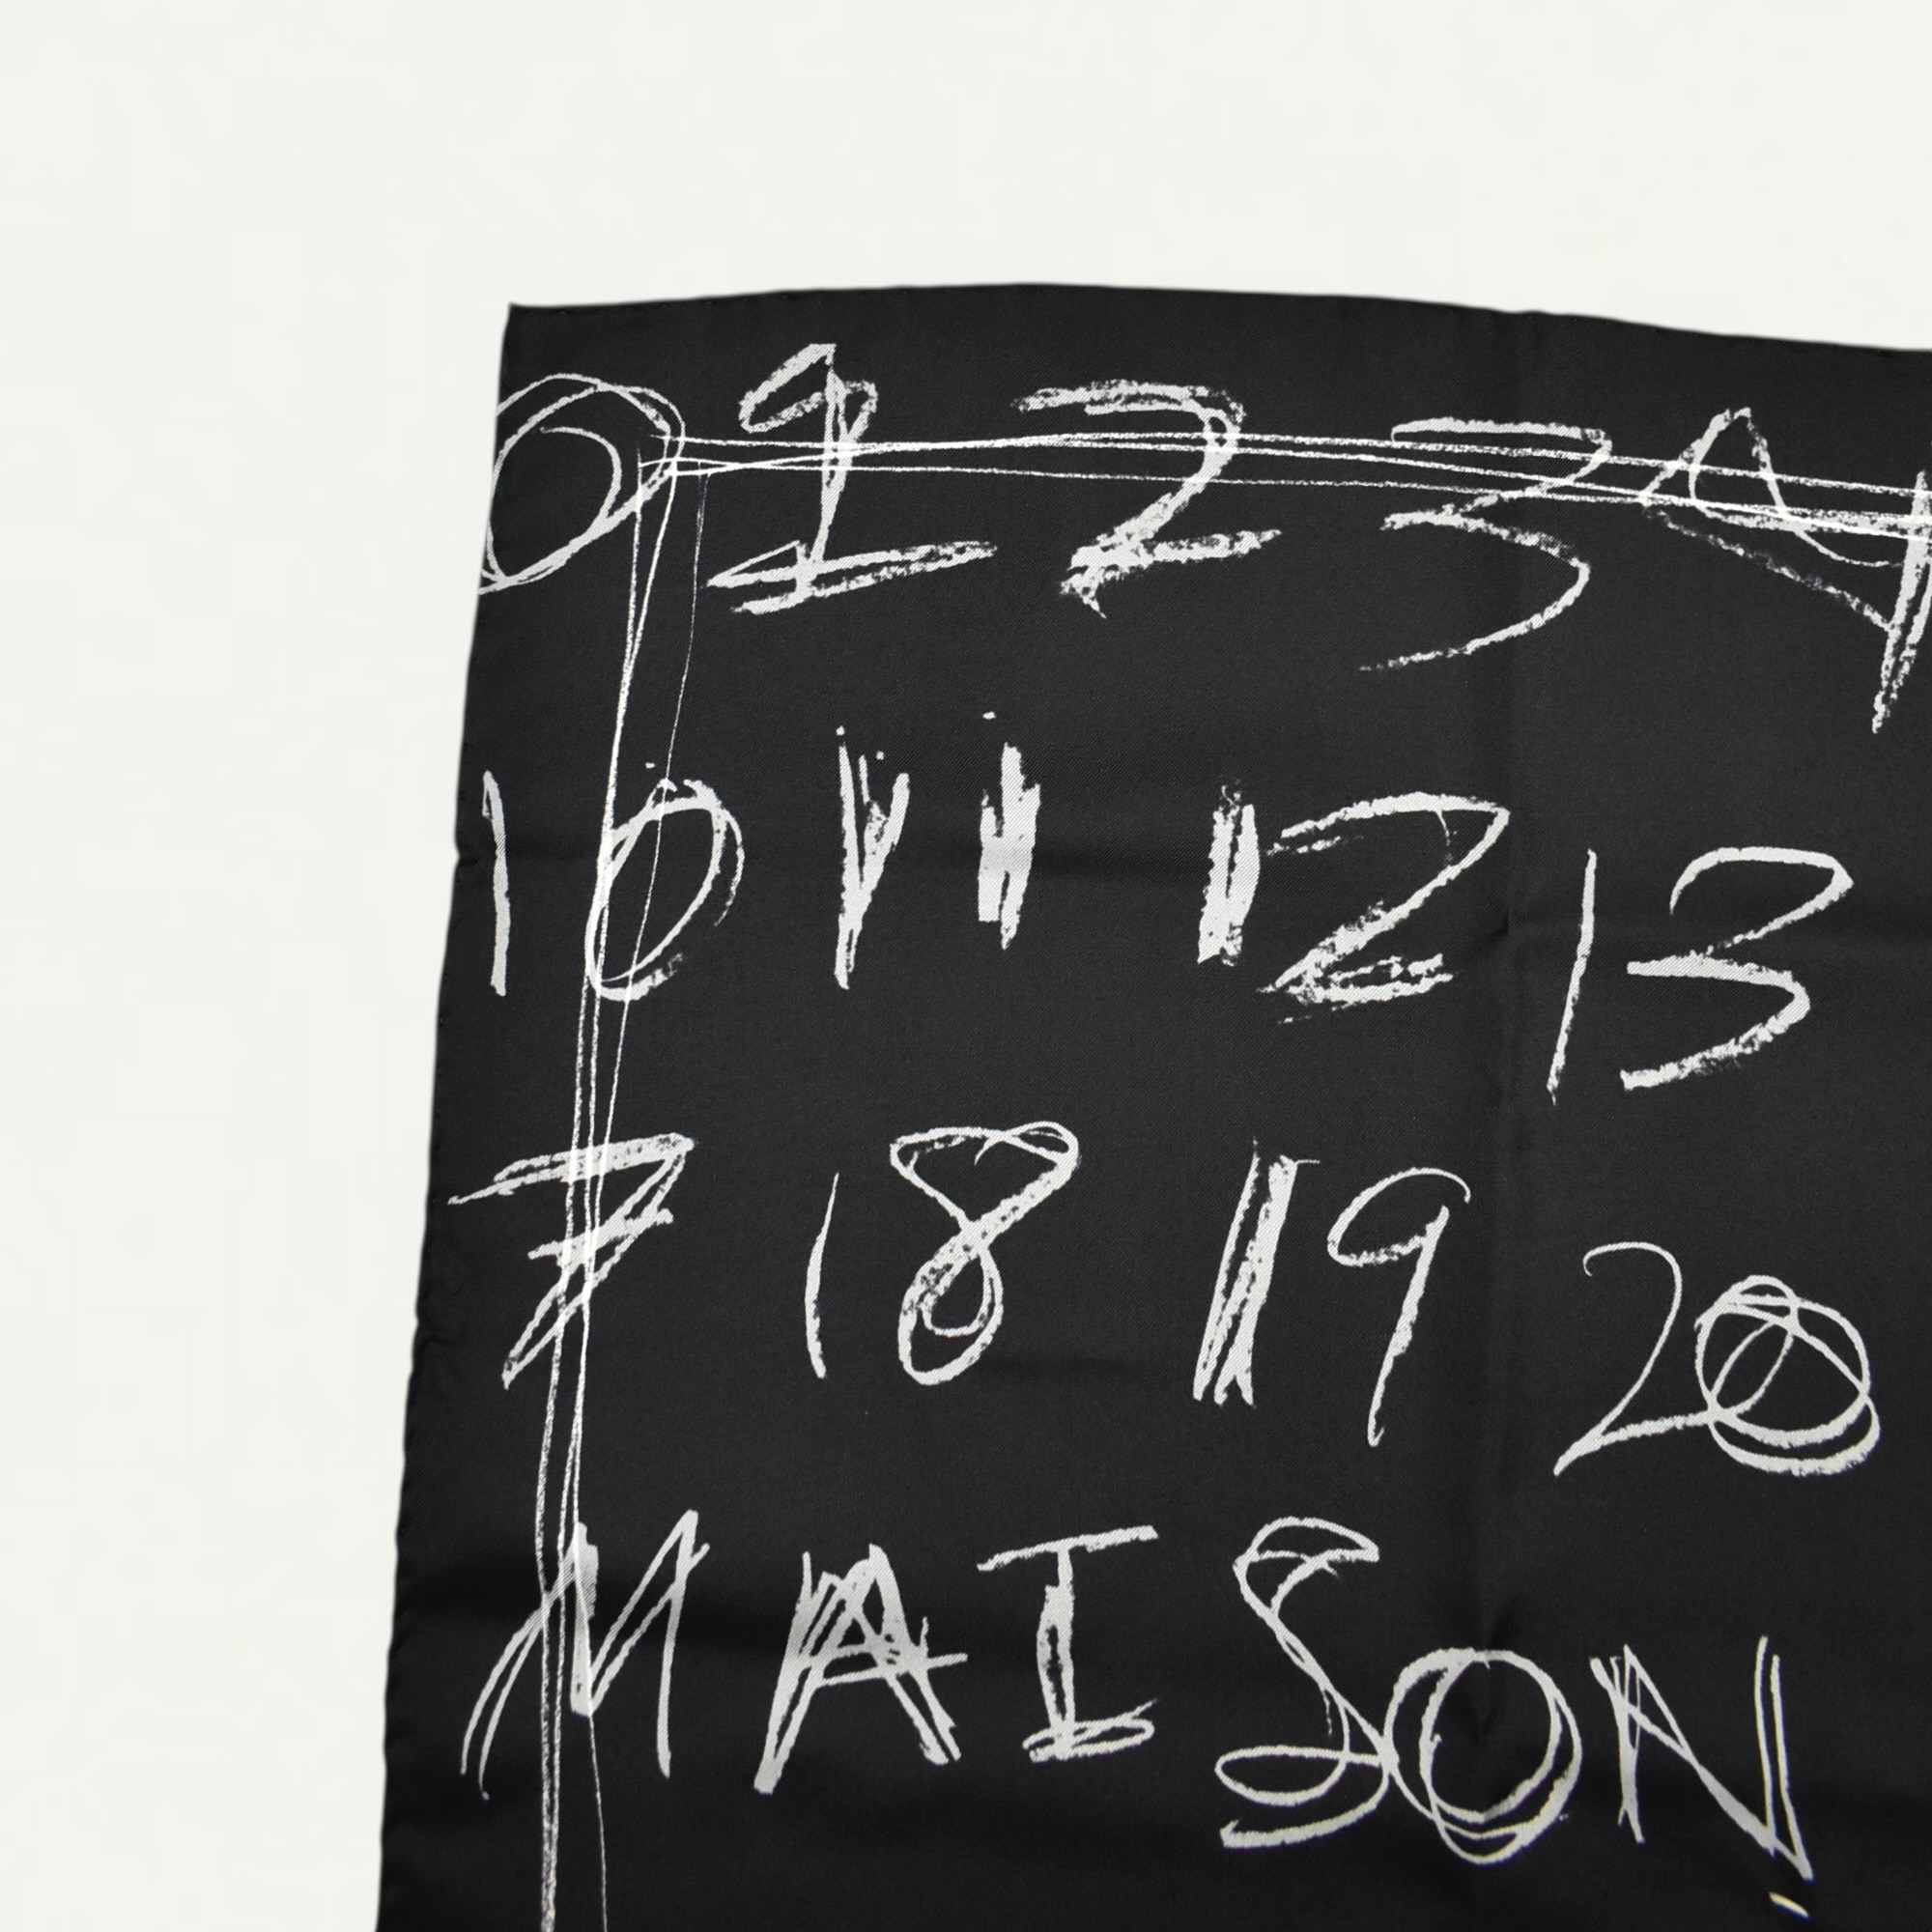 0 1 2 3 4
10 11 12 13
7 18 19 20
MAISON